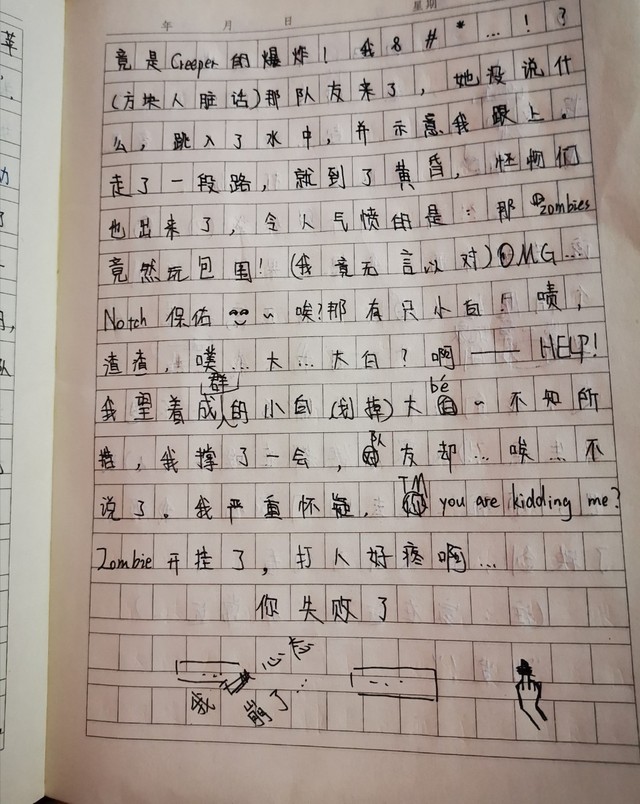 年 月 日 星期
竟是Creeper的爆炸！我&#*…！?
(方块人脏话)那队友来了，她没说什
么，跳入了水中，并示意我跟上。
走了一段路，就到了黄昏，怪物们
也出来了，令人气愤的是：那zombies
竟然玩包围！(我竟无言以对)OMG…
Notch保佑~唉?那有只小白！啧，
渣渣，噗…大…大白？啊——HELP!
我望着成群的小白(划掉)大白bé~不知所
措，我撑了一会，队友却…唉…不
说了。我严重怀疑，TM you are kidding me?
Zombie开挂了，打人好疼啊…
你失败了
我 心态
崩了…